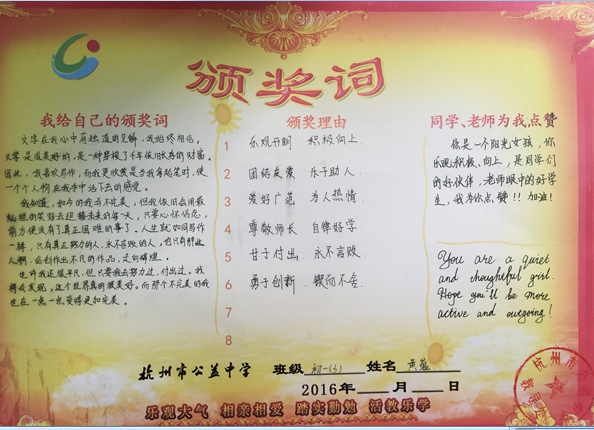 颁奖词
我给自己的颁奖词
文字在我心中有独道的见解,我始终相信,
文学是很美好的,是一种穿越了千年依旧长存的财富。
因此,我喜欢写作,而我更欣赏是当我拿起笔时,使
一个个人物在我手中活下去的感觉。
我知道,如今的我尚不完美,但我依旧会用最
灿烂的笑容去迎接未来的每一天,只要心怀信念,
前方便没有真正困难的事了。人生就如同写作
一样,只有真正努力的人,永不言败的人,也只有那些
人啊,会创作出不凡的作品,走向辉煌。
也许我还很平凡,但只要我去努力过,付出过。我
将会发现,这个世界真的很美好。而那个不完美的我
也在一点一点变得更加完美。
颁奖理由
1 乐观开朗 积极向上
2 团结友爱 乐于助人
3 爱好广泛 为人热情
4 尊敬师长 自律好学
5 甘于付出 永不言败
6 勇于创新 锲而不舍
7
8
同学、老师为我点赞
你是一个阳光女孩,你
乐观、积极、向上,是同学们
的好伙伴,老师眼中的好学
生,我为你点赞!!加油!
You are a quiet
and thoughtful girl.
Hope you'll be more
active and outgoing!
杭州市公益中学 班级 初一(3) 姓名 黄蕴
2016年 月 日
乐观大气 相亲相爱 踏实勤勉 活教乐学
杭州市